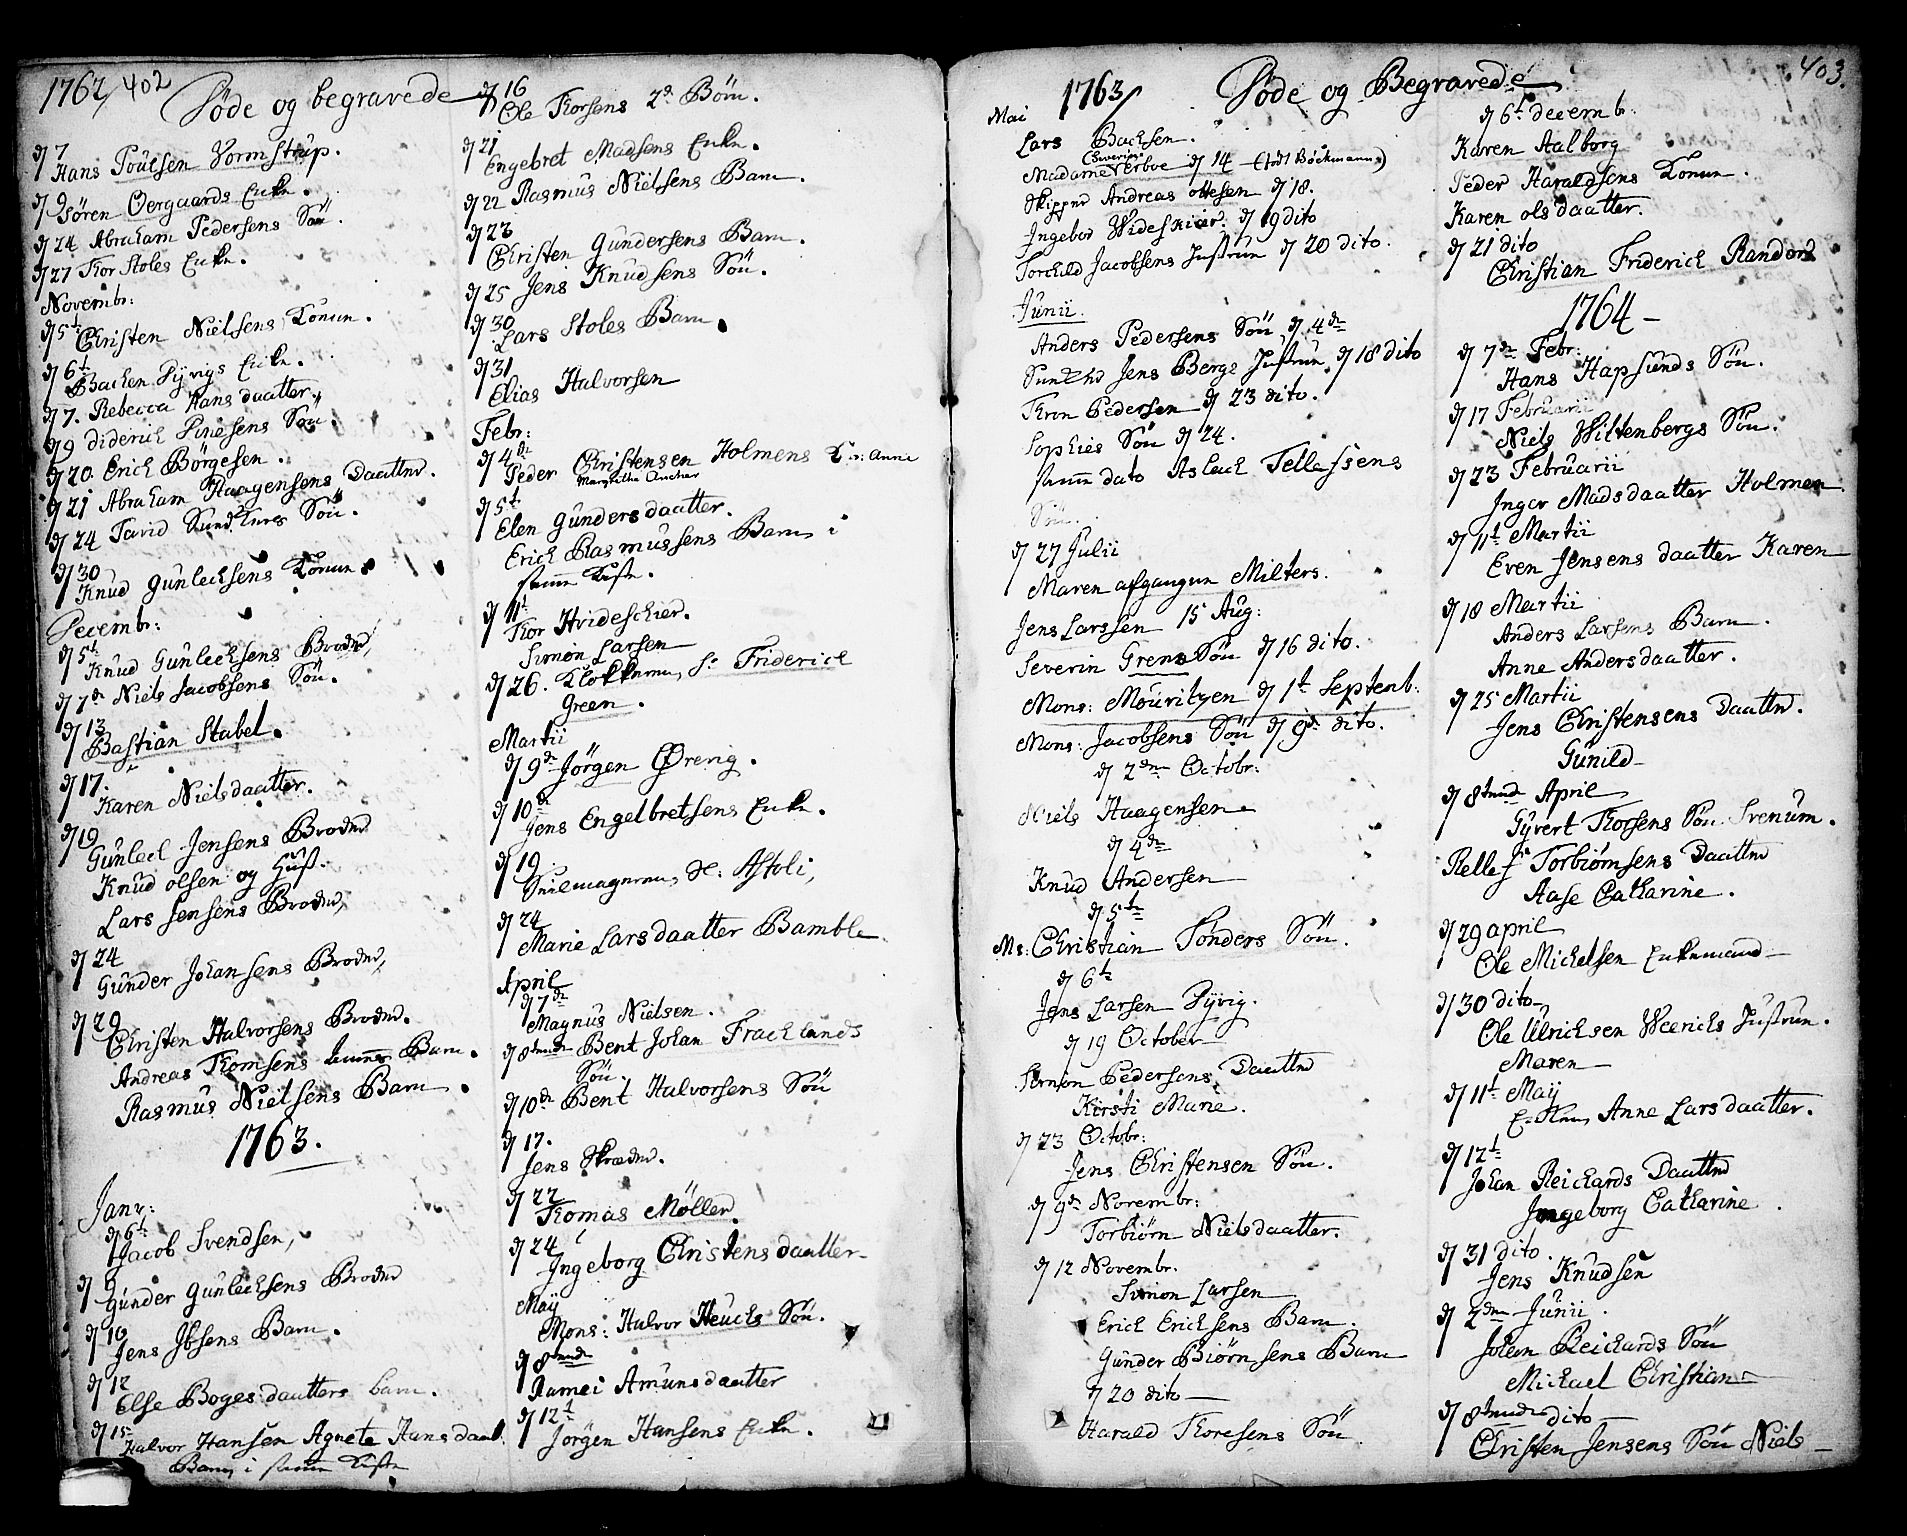 1762/ 402
Döde og begravede
d 7
Hans Poulsen Vormstrup.
d 9
Sören Overgaards Enke.
d 24 Abraham Pedersens Sön.
d 27 Tor Stoles Enke.
Novembr:
d 5t
Christen Nielsens Konen.
d 6t
Bachen Pyvigs Enke.
d 7. Rebecca Hansdaatter.
d 9 Diderich Sön.
d 20 Erich Börgesen.
d 21 Abraham Haagensens Daatter.
d 24 David Sön.
d 30
Knud Gunlechsens Konen
Decembr:
d 5t
Knud Gunlechsens Broder,
d 7de Niels Jacobsens Sön.
d 13
Bastian Stabel.
d 17.
Karen Nielsdaatter.
d 19
Gunlech Jensens Broder
Knud Olsen og
Lars Jensens Broder,
d 24
Gunder Johansens Broder,
d 29
Christen Halvorsens Broder.
Andreas Thomsens Barn.
Rasmus Nielsens Barn.
1763.
Janv:
d 6t
Jacob Svendsen,
d 9
Gunder Gunlechsens Broder
d 10
Jens Ibsens Barn.
d 12
Else Bogesdaatters barn.
d 15
Halvor Hansen Agnete Hansdaat.
Barn i samme Kiste
d 16
Ole Thorsens 2de Börn.
d 21
Engebret Madsens Enke.
d 22 Rasmus Nielsens Barn.
d 23
Christen Gundersens Barn.
d 25 Jens Knudsens Sön.
d 30
Lars Stoles Barn.
d 31
Elias Halvorsen
Febr:
d 4de
Peder Christensen Holmens K: Anne
Margrithe Ancher
d 5t
Elen Gundersdaatter.
Erich Rasmussens Barn i
samme Kiste.
d 11t
Tor Hvideschier.
Simon Larsen
d 26. Klokkeren, Sr Friderich
Green.
Martii
d 9de Jörgen Örevig.
d 10de
Jens Engelbretsens Enke.
d 19
de: Astoli,
d 24
Marie Larsdaatter Bamble
April
d 7de
Magnus Nielsen.
d 8tende Bent Johan Frachlands
Sön.
d 10de Bent Halvorsens Sön
d 17.
Jens Skræder.
d 22
Thomas Möller.
d 24
Ingeborg Christensdaatter
Maij
Mons: Halvor Heuchs Sön.
d 8tende
Ramei Amunsdaatter
d 12t
Jörgen Hansens Enke.
1763/
Döde og Begravede
403.
Mai
Lars Bachsen.
Severin
Madame Verboe d 14 (födt Böckmann)
Skipper Andreas Ottesen d 18.
Ingebor Wideskier: d 19 dito
Torchild Jacobsens Justrue d 20 dito.
Junii
Anders Pedersens Sön d 4de
Jens Bergs Justrue, d 18 dito
Thron Pedersen d 23 dito.
Sophies Sön d 24.
samme dato Aslach Tellefsens
Sön.
d 27 Julii
Maren afgangen Milters.
Jens Larssen 15 Aug:
Severin Grens Sön d 16 dito.
Mons: Mouritzen d 1t Septemb:
Mons: Jacobsens Sön d 9de dito.
d 2den Octobr:
Niels Haagensen
d 4de
Knud Andersen
d 5te
Ms: Christian Tönders Sön.
d 6te
Jens Larsen Pyvig.
d 19 October
Simon Pedersens Daatter
Kirsti Marie.
d 23 Octobr:
Jens Christensen Sön.
d 9de Novembr:
Torbiörn Nielsdaatter.
d 12 Novembr.
Simon Larsen
Erich Erichsens Barn.
Gunder Biörnsens Barn
d 20 dito
Harald Thoresens Sön.
d 6t decembr:
Karen Aalborg
Peder Haraldsens Konen.
Karen olsdaatter.
d 21 dito
Christian Friderich Randers
1764
d 7de Febr:
Hans Hapsunds Sön.
d 17 Februarii
Niels Wiltenbergs Sön.
d 23 Februarii
Inger Madsdaatter Holmen
d 11t Martii
Even Jensens daatter Karen
d 18 Martii
Anders Larsens Barn.
Anne Andersdaatter.
d 25 Martii
Jens Christensens Daatter.
Gunild
d 8tende April
Gyvert Thorsens Sön Svenum.
Rellef Torbiörnsens Daatter
Aase Catharine.
d 29 april
Ole Michelsen Enkemand
d 30 dito
Ole Ulrichsen Weerichs Justrue.
Maren
d 11t Maij
Enken Anne Larsdaatter.
d 12t
Johan Reichards Daatter
Ingeborg Catharine.
d 31 dito.
Jens Knudsen
d 2den Junii.
Johan Reichards Sön
Michael Christian
d 8tende dito
Christen Jensens Sön Niels